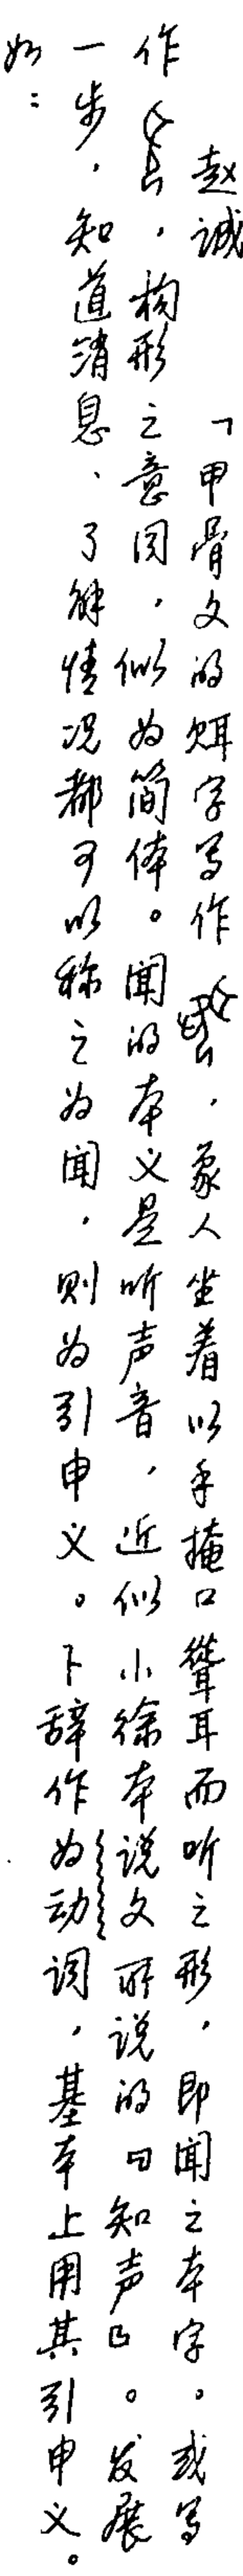 赵诚 「甲骨文的䎽字写作，象人坐着以手掩口耸耳而听之形，即闻之本字。或写
作，构形之意同，似为简体。闻的本义是听声音，近似小徐本说文所说的『知声』。发展
一步，知道消息、了解情况都可以称之为闻，则为引申义。卜辞作为动词，基本上用其引申义。
如：